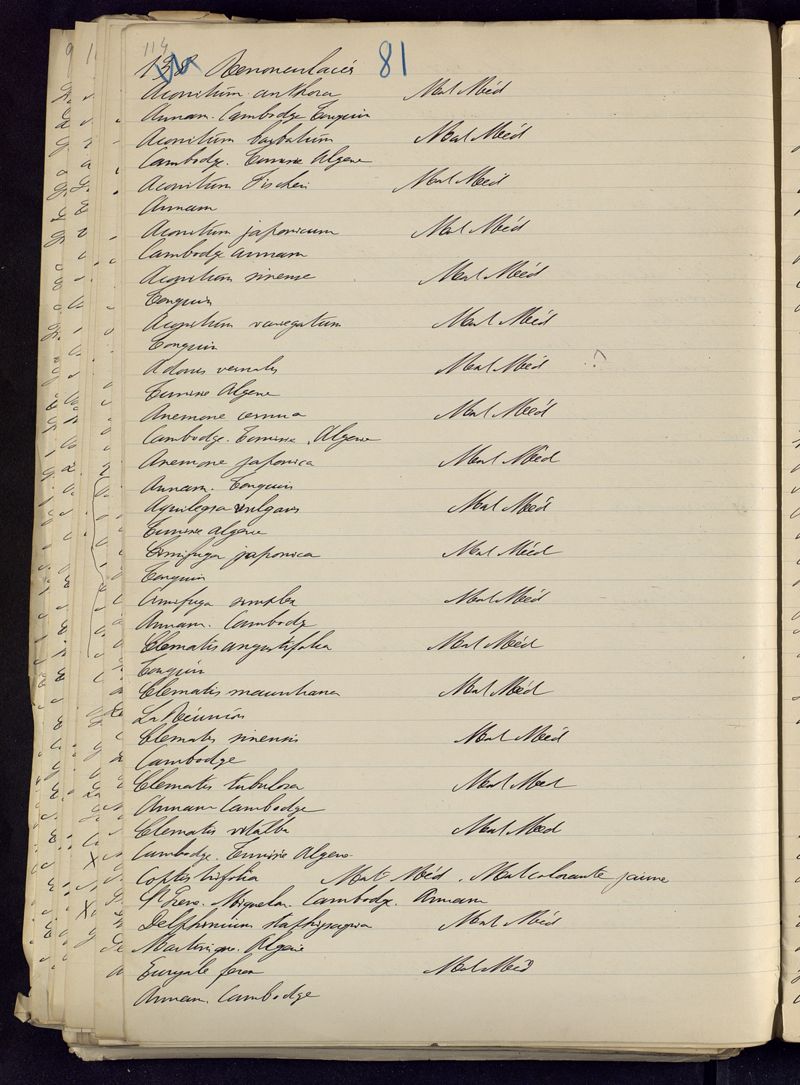 114
138 Renonculacés 81
Aconitum anthora Mat Méd
Annam. Cambodge Tonquin
Aconitum barbatum Mat Méd
Cambodge. Tunisie Algérie
Aconitum Fischeri Mat Méd
Annam
Aconitum japonicum Mat Méd
Cambodge annam
Aconitum sinense Mat Méd
Tonquin
Aconitum variegatum Mat Méd
Tonquin
Adonis vernalis Mat Méd
Tunisie Algérie
Anemone cernua Mat Méd
Cambodge. Tunisie. Algérie
Anemone japonica Mat Méd
Annam. Tonquin
Aquilegia vulgaris Mat Méd
Tunisie algérie
Cimifuga japonica Mat Méd
Tonquin
Cimifuga simplex Mat Méd
Annam. Cambodge
Clematis angustifolia Mat Méd
Tonquin
Clematis mauritiana Mat Méd
La Réunion
Clematis sinensis Mat Méd
Cambodge
Clematis tubulosa Mat Med
Annam Cambodge
Clematis vitalba Mat Med
Cambodge. Tunisie Algérie
Coptis trifolia Mat Méd. Mat colorante jaune
St Pierre. Miquelon. Cambodge. Annam
Delphinium staphysagria Mat Méd
Martinique. Algérie
Euryale ferox Mat Méd
Annam. Cambodge